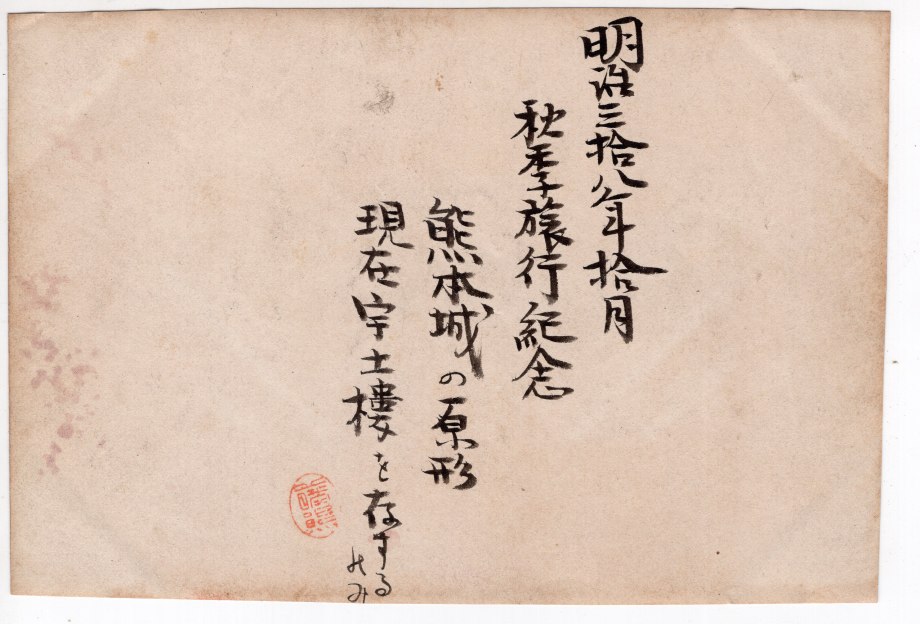 明治三拾八年拾月
秋季旅行紀念
熊本城の原形
現在宇土樓を存する
のみ